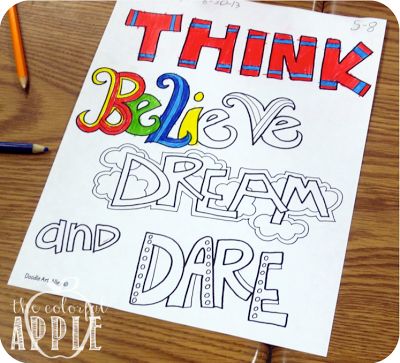 5-8
THINK
BeLieve
DREAM
and
DARE
Doodle Art Alley ©
the colorful
APPLE